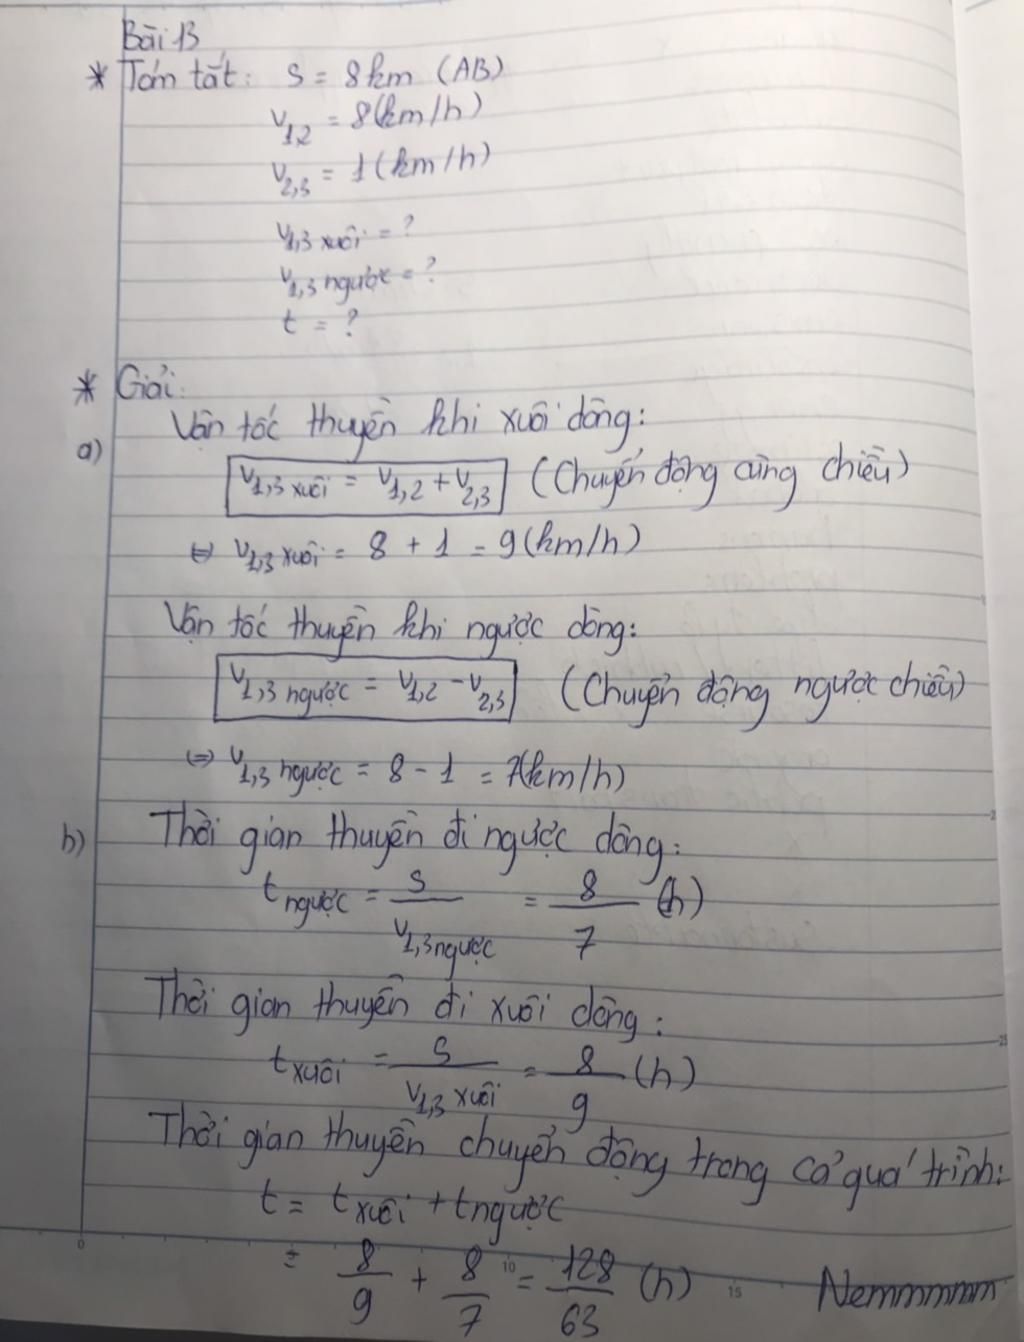 Bài 13
* Tóm tắt: S = 8km (AB)
v1,2 = 8(km/h)
v2,3 = 1(km/h)
v1,3 xuôi = ?
v1,3 ngược = ?
t = ?
* Giải:
Vận tốc thuyền khi xuôi dòng:
a)
v1,3 xuôi = v1,2 + v2,3 (Chuyển động cùng chiều)
⇔ v1,3 xuôi = 8 + 1 = 9(km/h)
Vận tốc thuyền khi ngược dòng:
v1,3 ngược = v1,2 - v2,3 (Chuyển động ngược chiều)
⇔ v1,3 ngược = 8 - 1 = 7(km/h)
b) Thời gian thuyền đi ngược dòng:
t ngược = S / v1,3 ngược = 8/7 (h)
Thời gian thuyền đi xuôi dòng:
t xuôi = S / v1,3 xuôi = 8/9 (h)
Thời gian thuyền chuyển động trong cả quá trình:
t = t xuôi + t ngược
= 8/9 + 8/7 = 128/63 (h) Nemmmmm
0 10 15